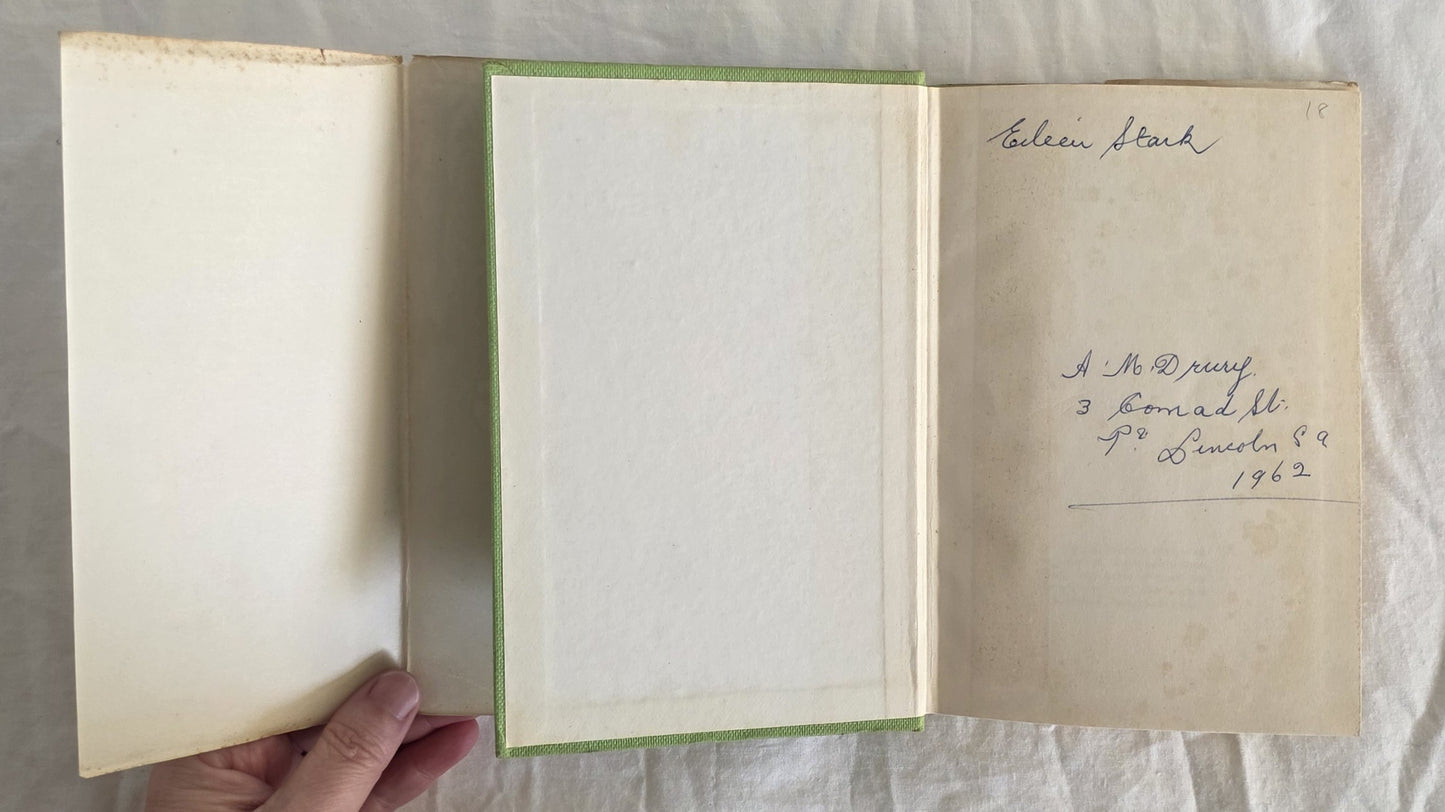 18
Eileen Stark
A. M. Drury.
3 Conrad St.
Pt. Lincoln S A
1962